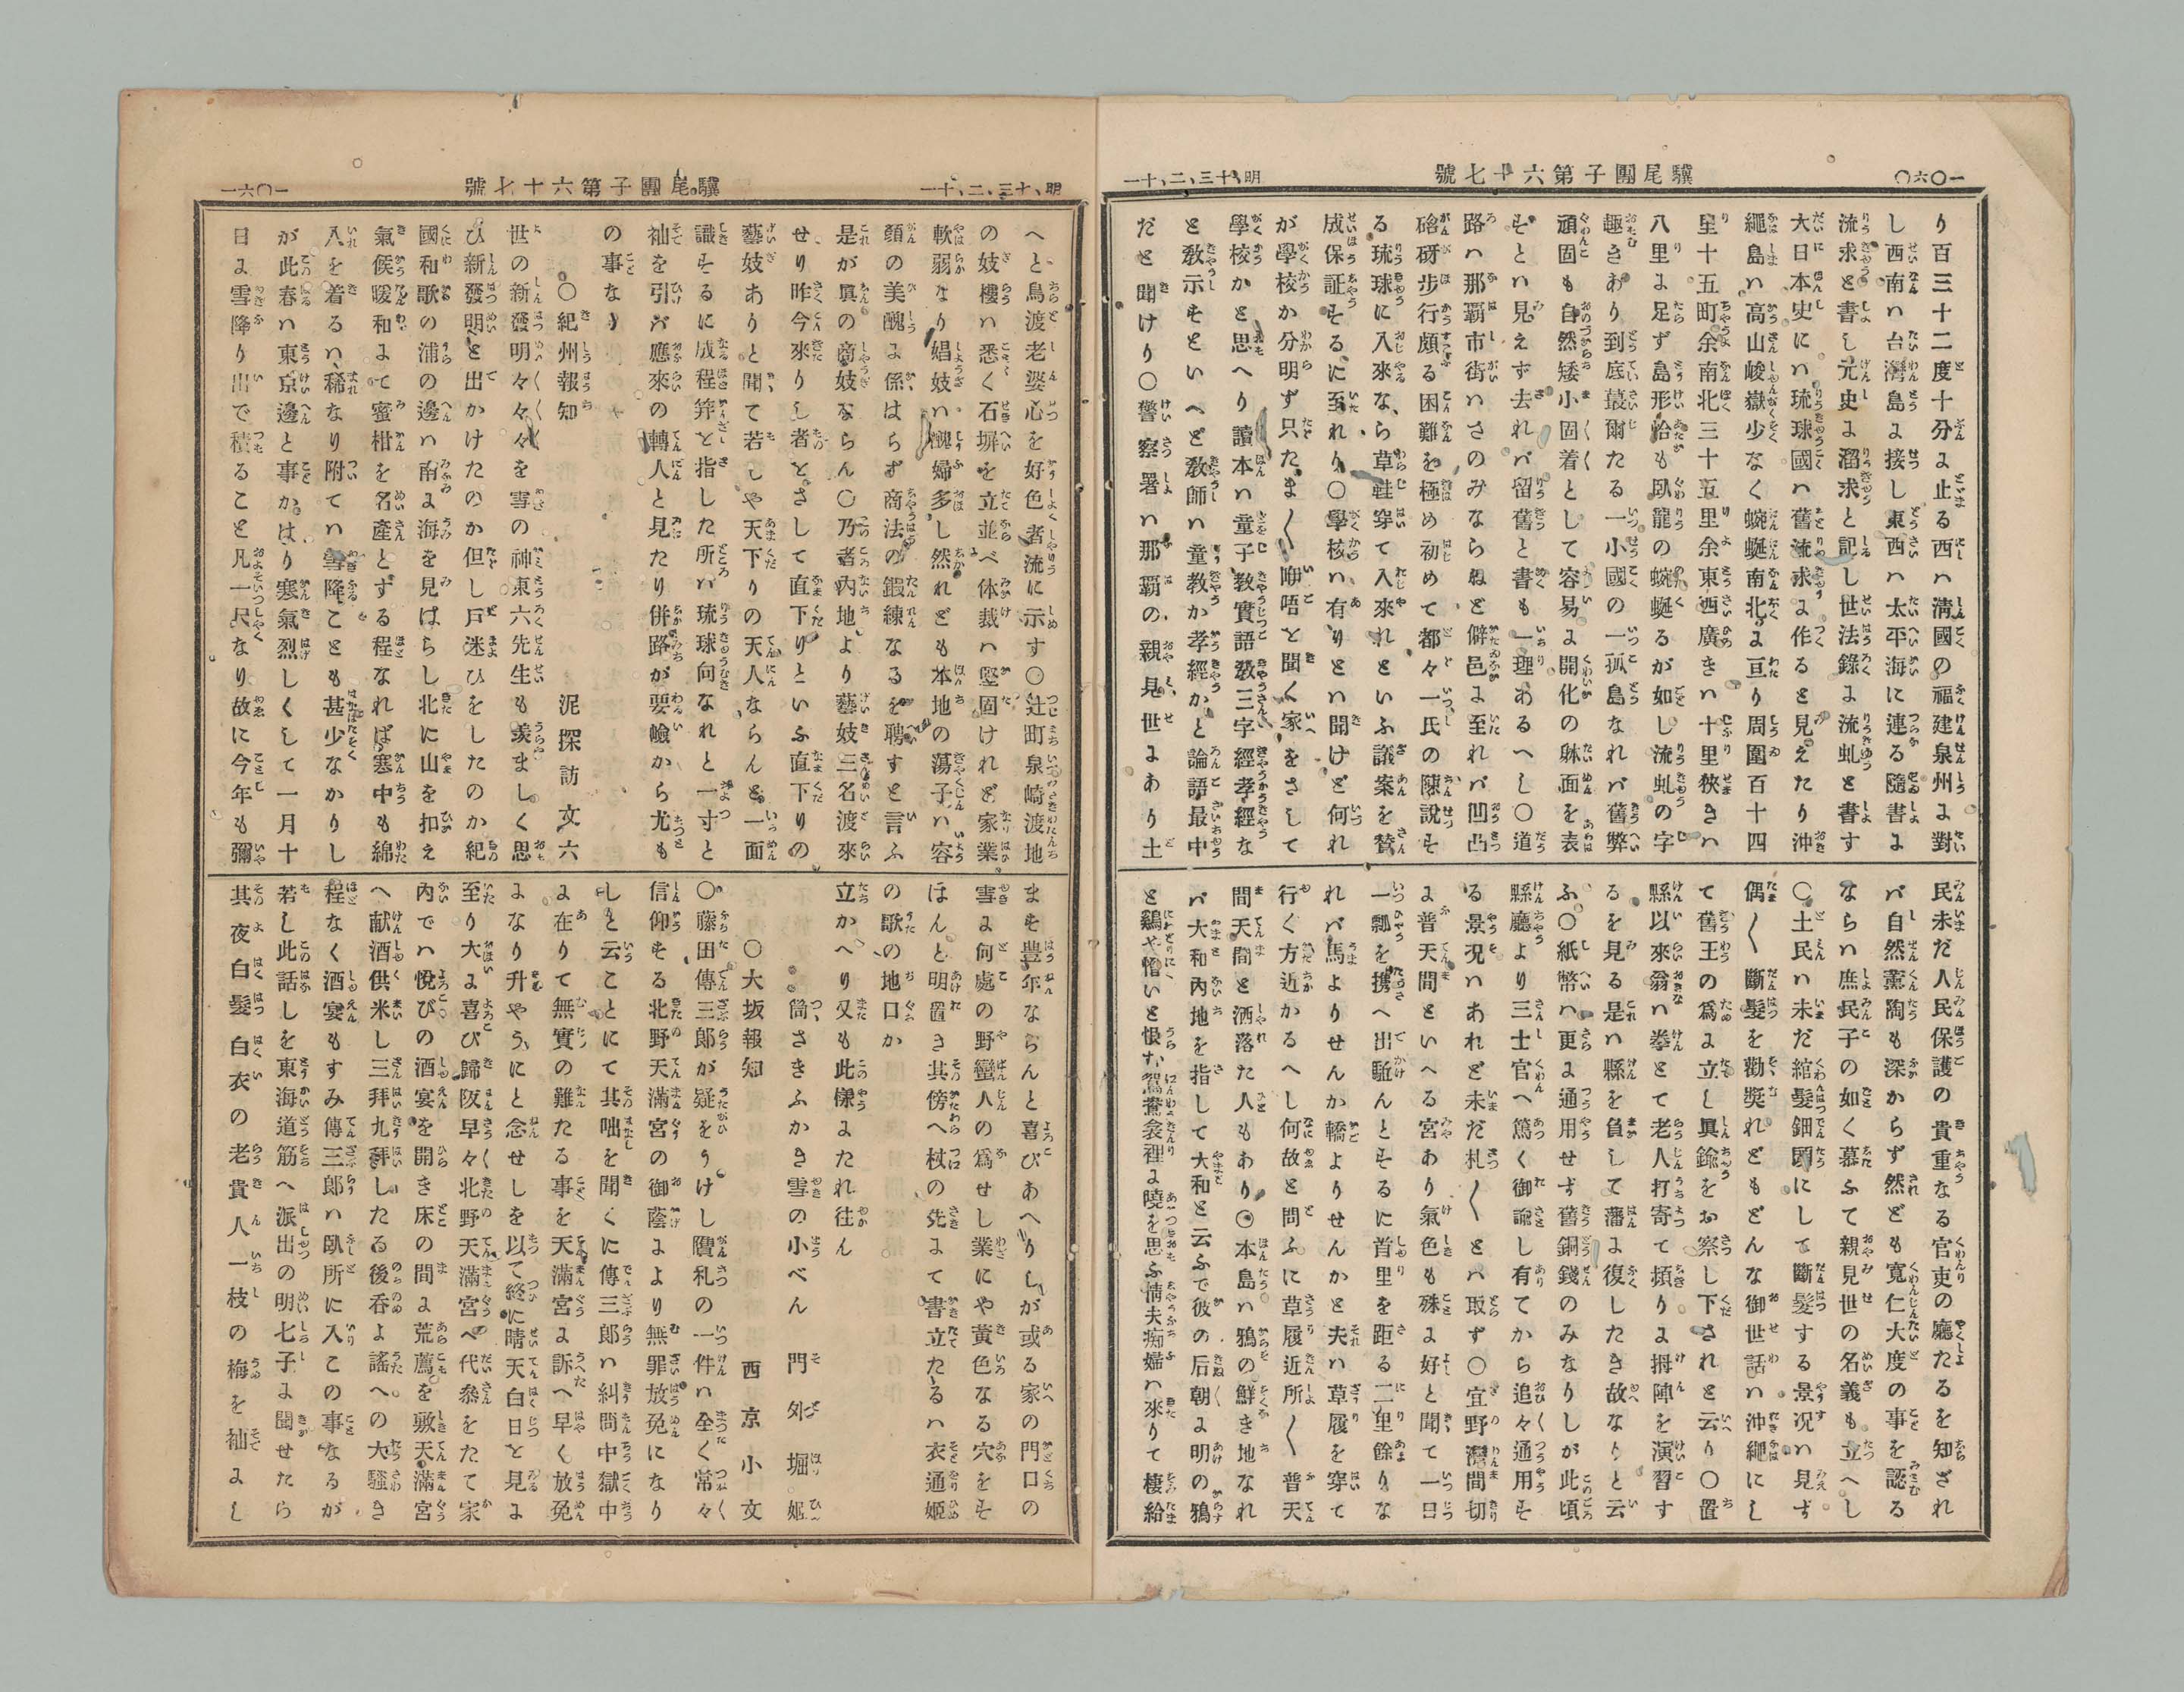 一〇六〇
驥尾團子第六十七號
明、十三、二、十一
り百三十二度十分ょ止る西ハ淸國の福建泉州ょ對
し西南ハ台灣島ょ接し東西ハ太平海に連る隨書ょ
流求と書し元史ょ溜求と記し世法錄ょ流虬と書す
大日本史にハ琉球國ハ舊流求ょ作ると見えたり沖
繩島ハ高山峻嶽少なく蜿蜒南北ょ亘り周圍百十四
里十五町余南北三十五里余東西廣きハ十里狹きハ
八里ょ足ず島形恰も臥龍の蜿蜒るが如し流虬の字
趣きあり到底蕞爾たる一小國の一孤島なれバ舊弊
頑固も自然矮小固着として容易ょ開化の躰面を表
そとハ見えず去れバ留舊と書も一理あるへし〇道
路ハ那覇市街ハさのみならねど僻邑ょ至れバ凹凸
硲砑步行頗る困難を極め初めて都々一氏の陳說そ
る琉球に入來な、ら草鞋穿て入來れといふ議案を贊
成保証そるに至れり〇學校ハ有りとハ聞けど何れ
が學校か分明ず只たま〱咿唔と聞く家をさして
學校かと思へり讀本ハ童子敎實語敎三字經孝經な
と敎示そといへど敎師ハ童敎か孝經かと論語最中
だと聞けり〇警察署ハ那覇の親見世ょあり土
民未だ人民保護の貴重なる官吏の廳たるを知ざれ
バ自然薰陶も深からず然ども寬仁大度の事を認る
ならハ庶民子の如く慕ふて親見世の名義も立へし
〇土民ハ未だ綰髮鈿頭にして斷髮する景况ハ見ず
偶〱斷髮を勸奬れどもどんな御世話ハ沖繩にし
て舊王の爲ょ立し眞鍮をお察し下されと云り〇置
縣以來翁ハ拳とて老人打寄て頻りょ拇陣を演習す
るを見る是ハ縣を負して藩ょ復したき故なりと云
ふ〇紙幣ハ更ょ通用せず舊銅錢のみなりしが此頃
縣廳より三士官へ篤く御諭し有てから追々通用そ
る景况ハあれど未だ札〱とハ取ず〇宜野灣間切
ょ普天間といへる宮あり氣色も殊ょ好と聞て一日
一瓢を携へ出駈んとそるに首里を距る二里餘りな
れバ馬よりせんか轎よりせんかと夫ハ草履を穿て
行く方近かるへし何故と問ふに草履近所〱普天
間天間と洒落た人もあり〇本島ハ鴉の鮮き地なれ
バ大和內地を指して大和と云ふで彼の后朝ょ明の鴉
と鷄や憎いと恨む鴛鴦衾裡ょ曉を思ふ情夫痴婦ハ來りて棲給
明、十三、二、十一
驥尾團子第六十七號
一〇六一
へと鳥渡老婆心を好色者流に示す〇辻町泉崎渡地
の妓樓ハ悉く石塀を立並べ体裁ハ堅固けれど家業
軟弱なり娼妓ハ醜婦多し然れども本地の蕩子ハ容
顏の美醜ょ係はらず商法の鍜練なるを聘すと言ふ
是が眞の商妓ならん〇乃者內地より藝妓三名渡來
せり昨今來りし者とさして直下りといふ直下りの
藝妓ありと聞て若しや天下りの天人ならんと一面
識そるに成程笄と指した所ハ琉球向なれと一寸と
袖を引バ應來の轉人と見たり併路が要嶮から尤も
の事なり
〇紀州報知　泥探訪文六
世の新發明々々々を雪の神東六先生も羨ましく思
ひ新發明と出かけたのか但し戸迷ひをしたのか紀
國和歌の浦の邊ハ南ょ海を見はらし北に山を扣え
氣候暖和ょて蜜柑を名產とずる程なれば寒中も綿
入を着るハ稀なり附てハ雪降ことも甚少なかりし
が此春ハ東京邊と事かはり寒氣烈しくして一月十
日ょ雪降り出で積ること凡一尺なり故に今年も彌
まそ豊年ならんと喜びあへりしが或る家の門口の
雪ょ何處の野蠻人の爲せし業にや黃色なる穴をそ
ほんと明置き其傍へ杖の先ょて書立たるハ衣通姬
の歌の地口か
立かへり又も此樣ょたれ往ん
筒さきふかき雪の小べん　門外堀姬
〇大坂報知　西京小文
〇藤田傳三郞が疑をりけし贋札の一件ハ全く常々
信仰そる北野天滿宮の御蔭ょより無罪放免になり
しと云ことにて其咄を聞くに傳三郞ハ糾問中獄中
ょ在りて無實の難たる事を天滿宮ょ訴へ早く放免
ょなり升やうにと念せしを以て終に晴天白日と見ょ
至り大ょ喜び歸阪早々北野天滿宮へ代叅をたて家
內でハ悅びの酒宴を開き床の間ょ荒薦を敷天滿宮
へ獻酒供米し三拜九拜したる後呑よ謠への大騷き
程なく酒宴もすみ傳三郞ハ臥所に入この事なるが
若し此話しを東海道筋へ派出の明七子ょ聞せたら
其夜白髮白衣の老貴人一枝の梅を袖ょし